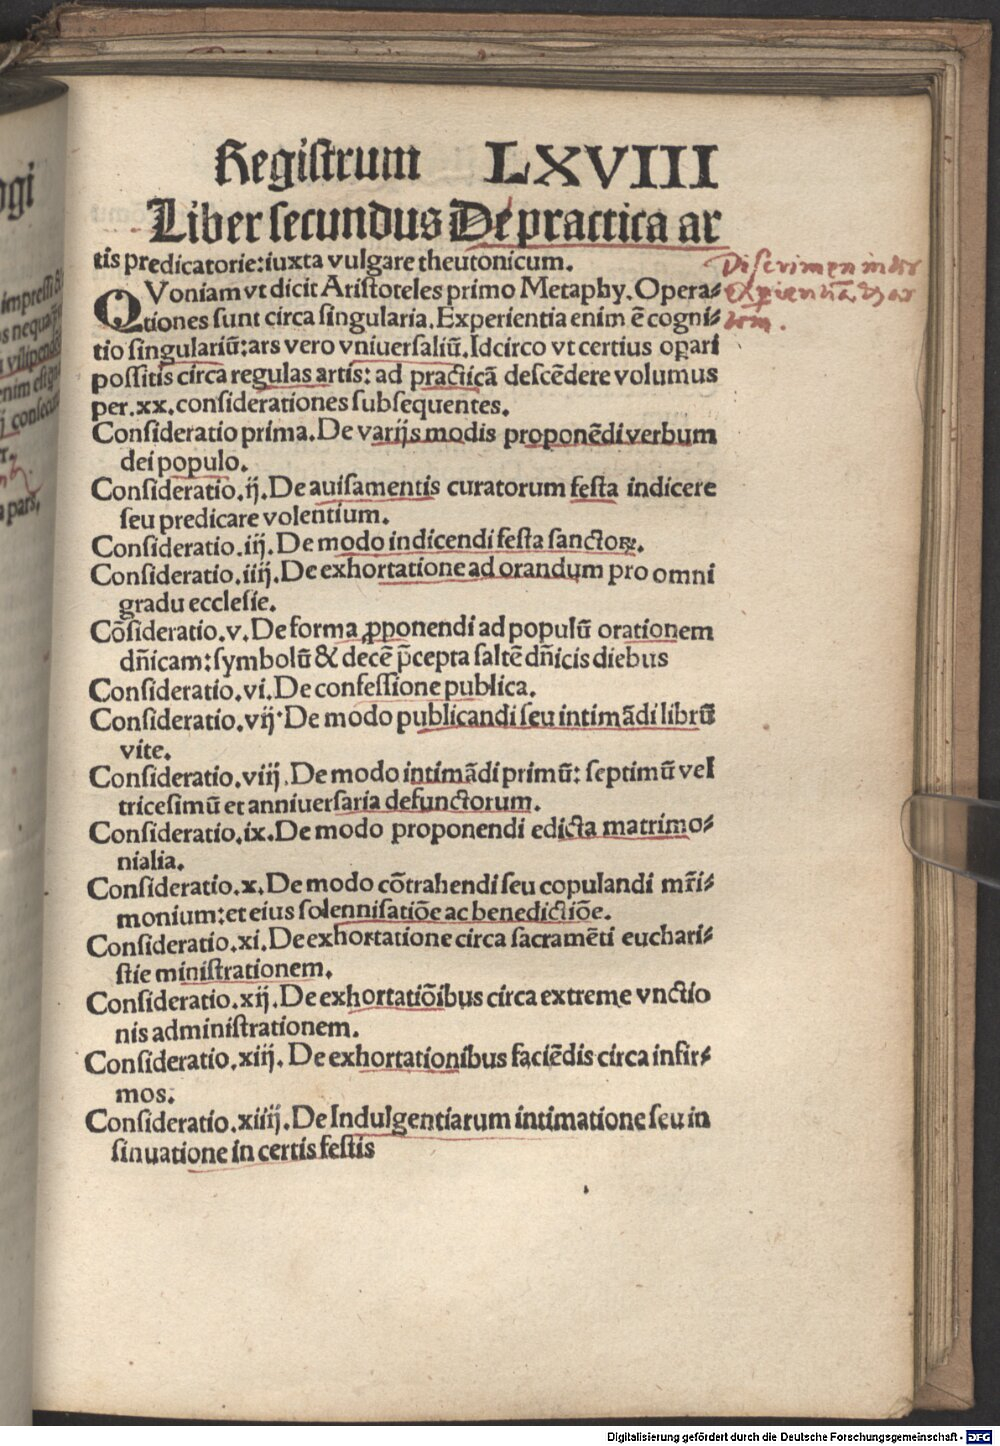 Regiſtrum LXVIII
Liber ſecundus De practica ar
tis predicatorie: iuxta vulgare theutonicum.
QVoniam vt dicit Ariſtoteles primo Metaphy. Opera⸗
tiones ſunt circa ſingularia. Experientia enim ē cogni⸗
tio ſingulariū: ars vero vniuerſaliū. Idcirco vt certius oꝑari
poſſitis circa regulas artis: ad practicā deſcēdere volumus
per .xx. conſiderationes ſubſequentes.
Conſideratio prima. De varijs modis proponēdi verbum
dei populo.
Conſideratio .ij. De auiſamentis curatorum feſta indicere
ſeu predicare volentium.
Conſideratio .iij. De modo indicendi feſta ſanctoꝝ.
Conſideratio .iiij. De exhortatione ad orandum pro omni
gradu eccleſie.
Cōſideratio .v. De forma ꝓponendi ad populū orationem
dn̄icam: ſymbolū & decē p̄cepta ſaltē dn̄icis diebus
Conſideratio .vi. De confeſſione publica.
Conſideratio .vij. De modo publicandi ſeu intimādi librū
vite.
Conſideratio .viij. De modo intimādi primū: ſeptimū vel
triceſimū et anniuerſaria defunctorum.
Conſideratio .ix. De modo proponendi edicta matrimo⸗
nialia.
Conſideratio .x. De modo cōtrahendi ſeu copulandi mr̄i⸗
monium: et eius ſolenniſatiōe ac benedictiōe.
Conſideratio .xi. De exhortatione circa ſacramēti euchari⸗
ſtie miniſtrationem.
Conſideratio .xij. De exhortatiōibus circa extreme vnctio
nis adminiſtrationem.
Conſideratio .xiij. De exhortationibus faciēdis circa infir⸗
mos.
Conſideratio .xiiij. De Indulgentiarum intimatione ſeu in
ſinuatione in certis feſtis
Diſcrimen inter
experientiā & ar
tem.
Digitalisierung gefördert durch die Deutsche Forschungsgemeinschaft - DFG